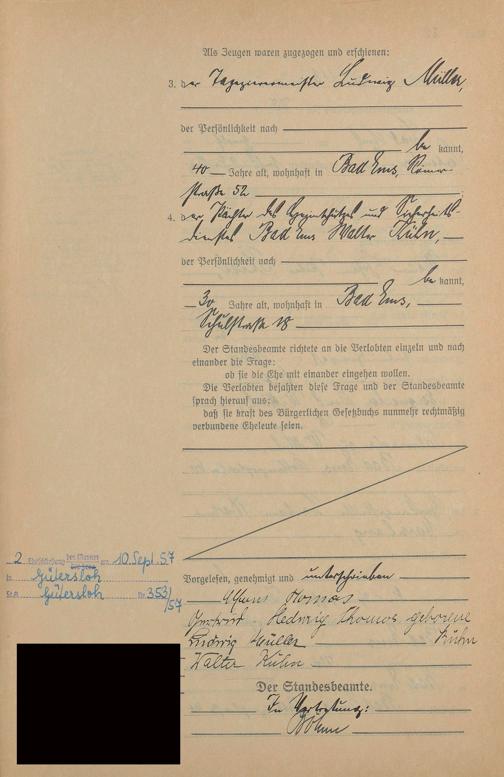 Als Zeugen waren zugezogen und erschienen:
3. der Tapezierermeister Ludwig Müller,
der Persönlichkeit nach
be kannt,
40 Jahre alt, wohnhaft in Bad Ems, Römer-
straße 52
4. der Wächter des und Sicherheits-
dienstes Bad Ems Walter Kühn,
der Persönlichkeit nach
be kannt,
30 Jahre alt, wohnhaft in Bad Ems,
Schulstraße 18
Der Standesbeamte richtete an die Verlobten einzeln und nach
einander die Frage:
ob sie die Ehe mit einander eingehen wollen.
Die Verlobten bejahten diese Frage und der Standesbeamte
sprach hierauf aus:
daß sie kraft des Bürgerlichen Gesetzbuchs nunmehr rechtmäßig
verbundene Eheleute seien.
2. Eheschließung des Mannes am 10. Sept. 57
in Gütersloh
St.A. Gütersloh Nr. 353/57
Vorgelesen, genehmigt und unterschrieben
Thomas
Hedwig Thomas geborene
Kühn
Ludwig Müller
Walter Kühn
Der Standesbeamte.
In Vertretung: